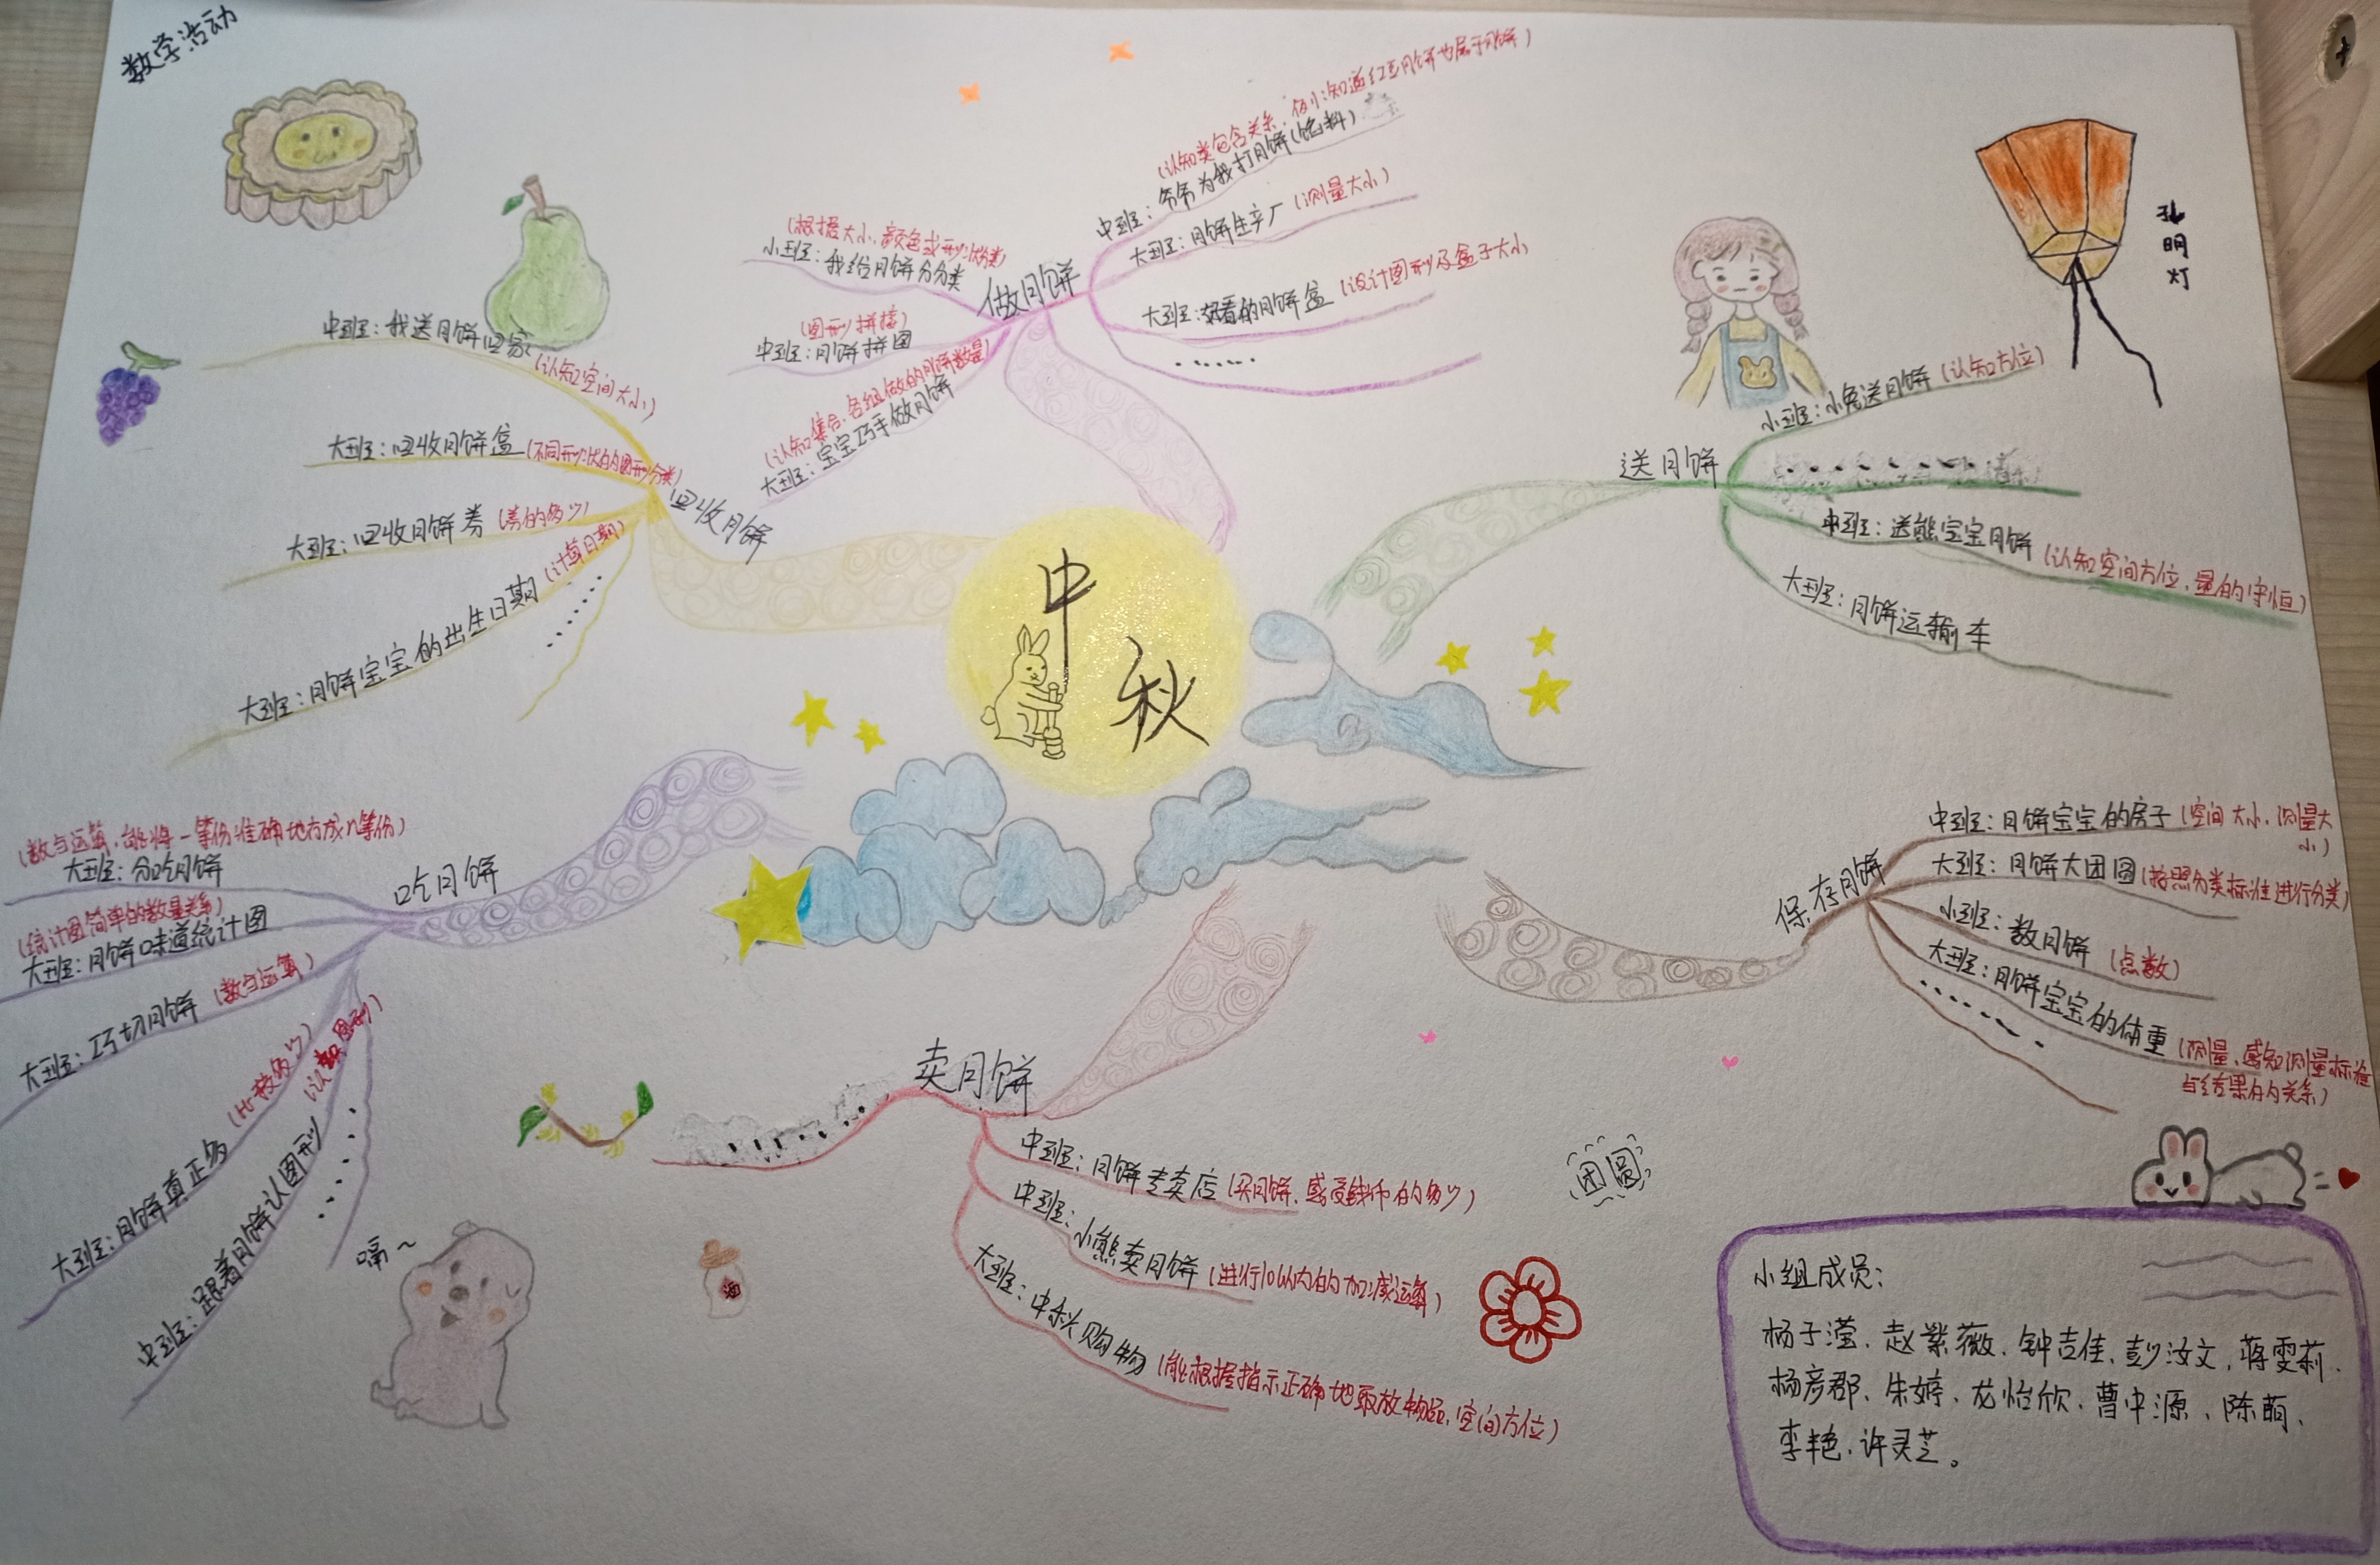 数学活动
中秋
做月饼
(根据大小、颜色或形状分类)
小班：我给月饼分分类
(图形拼接)
中班：月饼拼图
(认知集合，各组做的月饼数量)
大班：宝宝巧手做月饼
(认知类包含关系，例：知道红豆月饼也属于月饼)
中班：爷爷为我打月饼(馅料)
大班：月饼生产厂(测量大小)
大班：好看的月饼盒(设计图形及盒子大小)
……
孔明灯
送月饼
小班：小兔送月饼(认知方位)
……
中班：送熊宝宝月饼(认知空间方位，量的守恒)
大班：月饼运输车
回收月饼
中班：我送月饼回家(认知空间大小)
大班：回收月饼盒(不同形状的图形分类)
大班：回收月饼券(券的多少)
大班：月饼宝宝的出生日期(计算日期)
……
吃月饼
(数与运算，能将一等份准确地分成n等份)
大班：分吃月饼
(统计图简单的数量关系)
大班：月饼味道统计图
大班：巧切月饼(数与运算)
大班：月饼真正多(比较多少)
中班：跟着月饼认图形(认知图形)
……
嗝~
酒
卖月饼
……
中班：月饼专卖店(买月饼，感受钱币的多少)
中班：小熊卖月饼(进行10以内的加减运算)
大班：中秋购物(能根据指示正确地取放物品，空间方位)
团圆
保存月饼
中班：月饼宝宝的房子(空间大小，测量大
小)
大班：月饼大团圆(按照分类标准进行分类)
小班：数月饼(点数)
大班：月饼宝宝的体重(测量、感知测量标准
与结果存的关系)
……
小组成员：
杨子滢、赵紫薇、钟吉佳、彭汝文、蒋雯莉、
杨彦郡、朱婷、龙怡欣、曹中源、陈萌、
李艳、许灵芝。